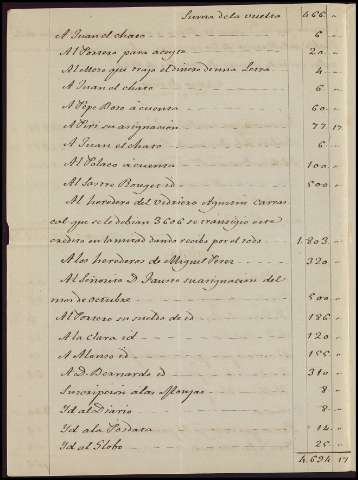 Suma de la vuelta 466 "
A Juan el chato 6 "
Al Portero para aceyte 20 "
Al Moro que trajo el dinero de una Letra 4 "
A Juan el chato 6 "
A Pepe Boro á cuenta 60 "
A Piri su asignacion 77 17
A Juan el chato 6 "
Al Polaco á cuenta 100 "
Al Sastre Bouget id 500 "
Al heredero del vidriero Agustin Carras
cal que se le debian 3606 se transigio este
credito en la mitad dando recibo por el todo 1.803 "
A los herederos de Miguel Perez 320 "
Al Señorito D. Fausto su asignacion del
mes de octubre 500 "
Al Portero su sueldo de id 186 "
A la Clara id 120 "
A Alonso id 155 "
A D. Bernardo id 310 "
Suscripcion a las Monjas 8 "
Id al Diario 8 "
Id a la Posdata 14 "
Id al Globo 25 "
4.694 17